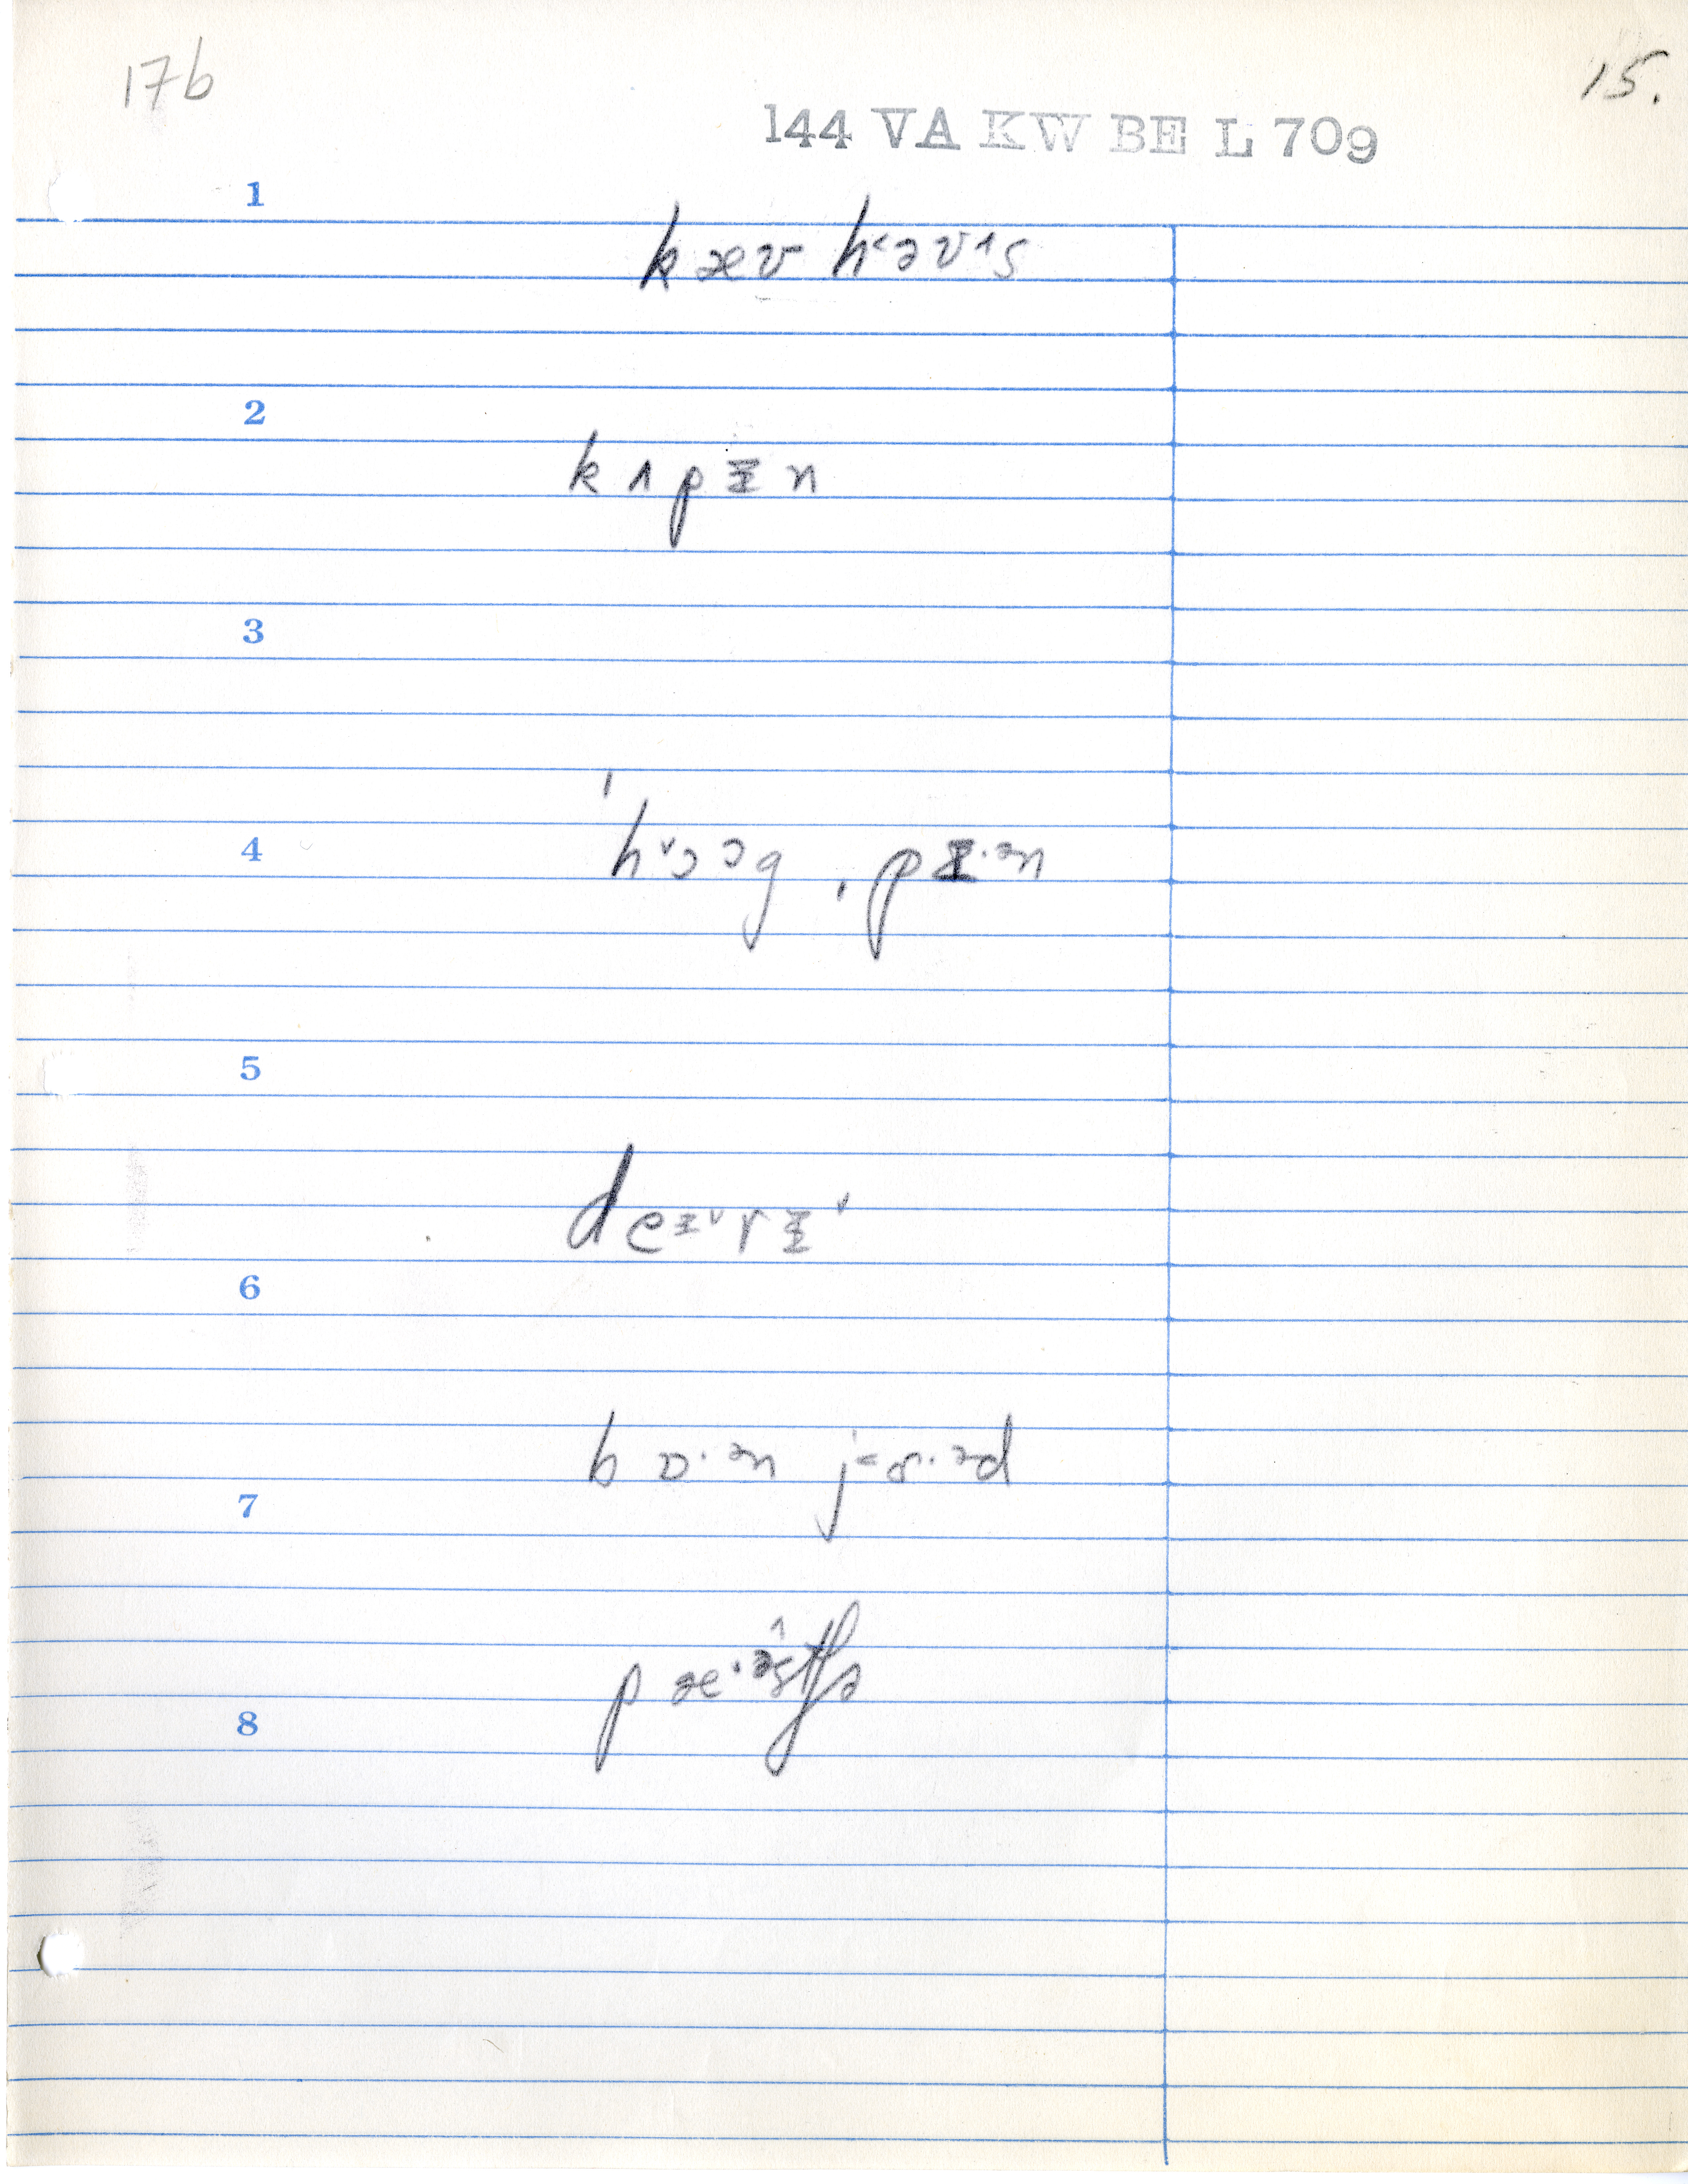 17b
15.
144 VA KW BE L 709
1
kæʊ h˂əʊ˄s
2
kʌpᵻn
3
4
ˈh˅ɔɔg ˌpᵻ·ᵊn
5
deᵻ˅rᵻ˅
6
bɒ·ᵊn j˂ɑ·ᵊd
7
pæ·ᵊstʃə
8